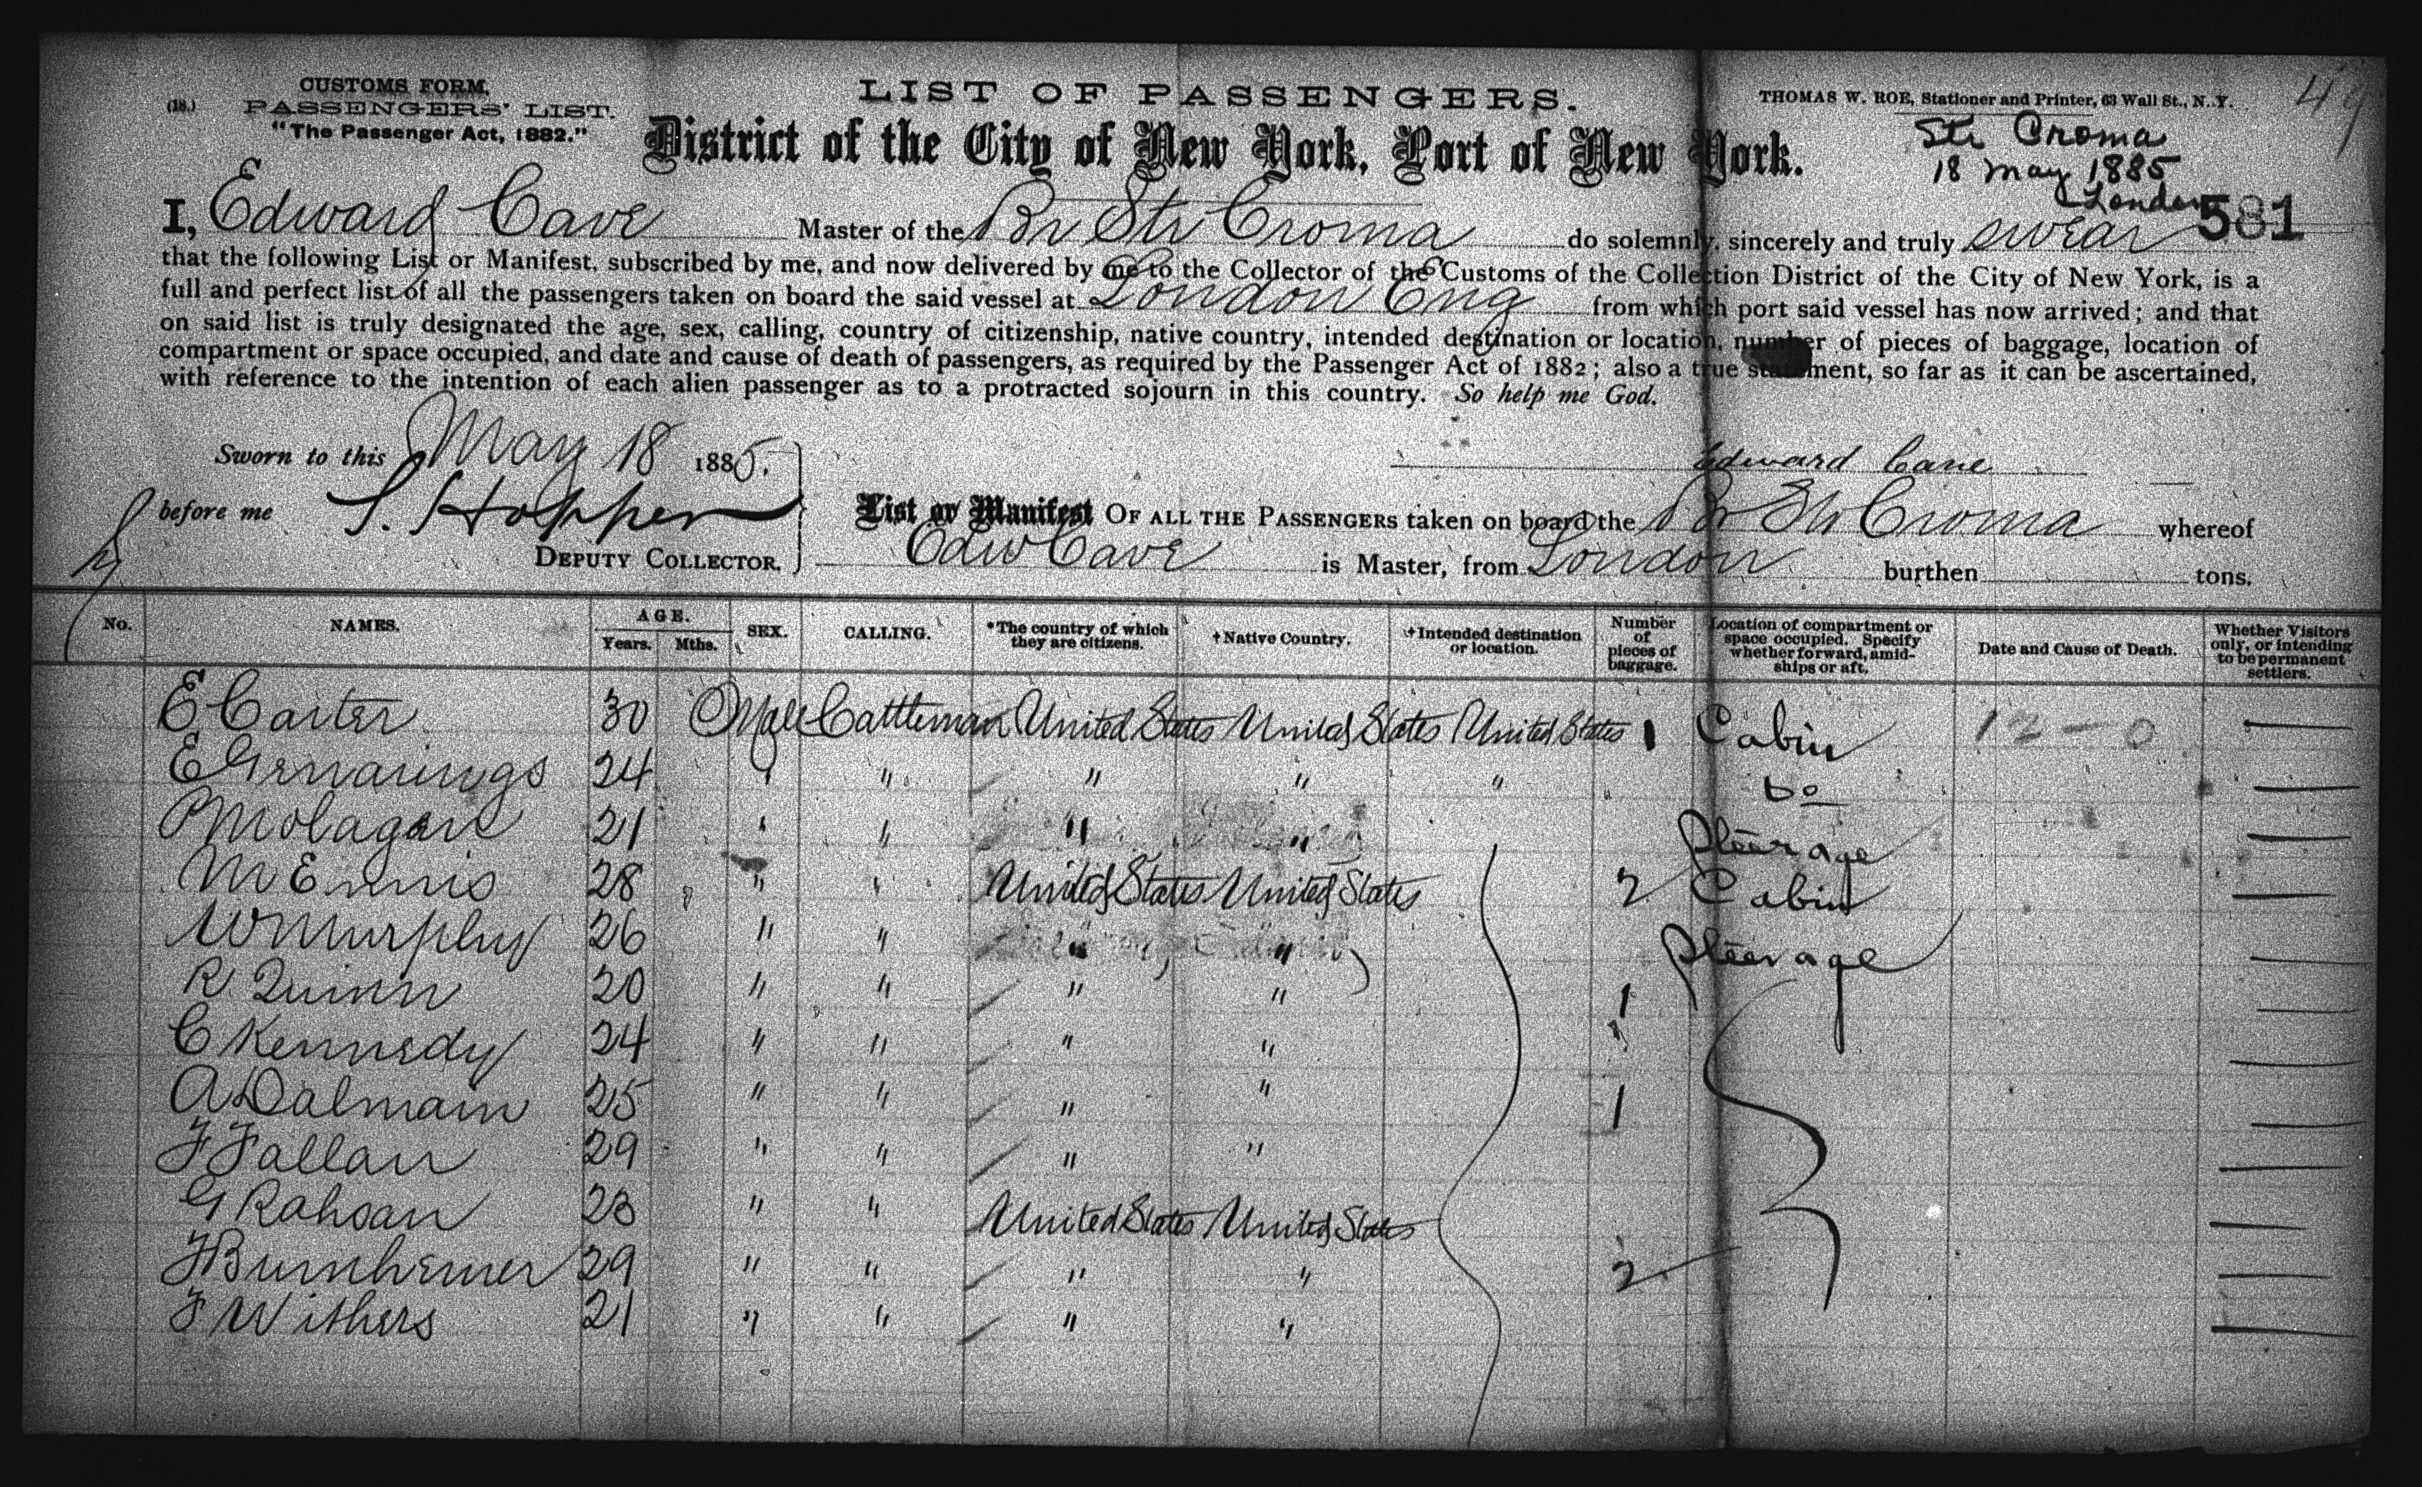 CUSTOMS FORM,
(18.) PASSENGERS' LIST.
"The Passenger Act, 1882."
LIST OF PASSENGERS.
THOMAS W. ROE, Stationer and Printer, 63 Wall St., N. Y. 49
District of the City of New York, Port of New York.
Str Croma
18 May 1885
London
581
I, Edward Cave Master of the Br Str Croma do solemnly, sincerely and truly swear
that the following List or Manifest, subscribed by me, and now delivered by me to the Collector of the Customs of the Collection District of the City of New York, is a
full and perfect list of all the passengers taken on board the said vessel at London Eng from which port said vessel has now arrived; and that
on said list is truly designated the age, sex, calling, country of citizenship, native country, intended destination or location, number of pieces of baggage, location of
compartment or space occupied, and date and cause of death of passengers, as required by the Passenger Act of 1882; also a true statement, so far as it can be ascertained,
with reference to the intention of each alien passenger as to a protracted sojourn in this country. So help me God.
Sworn to this May 18 1885.
Edward Cave
before me S. Hopper
DEPUTY COLLECTOR.
List or Manifest OF ALL THE PASSENGERS taken on board the Br Str Croma whereof
Edw Cave is Master, from London burthen tons.
No. NAMES. AGE. Years. Mths. SEX. CALLING. *The country of which they are citizens. †Native Country. †Intended destination or location. Number of pieces of baggage. Location of compartment or space occupied. Specify whether forward, amidships or aft. Date and Cause of Death. Whether Visitors only, or intending to be permanent settlers.
E Carter 30 Male Cattleman United States United States United States 1 Cabin 12 - 0
E 24 " " " " " Do
P 21 " " " " Steerage
M Ennis 28 " " United States United States 2 Cabin
W Murphy 26 " " " " Steerage
R. Quinn 20 " " " " 1
C Kennedy 24 " " " "
A Dalmain 25 " " " " 1
F Fallan 29 " " " "
G Rahoan 28 " " United States United States
F 29 " " " " 2
F Withers 21 " " " "